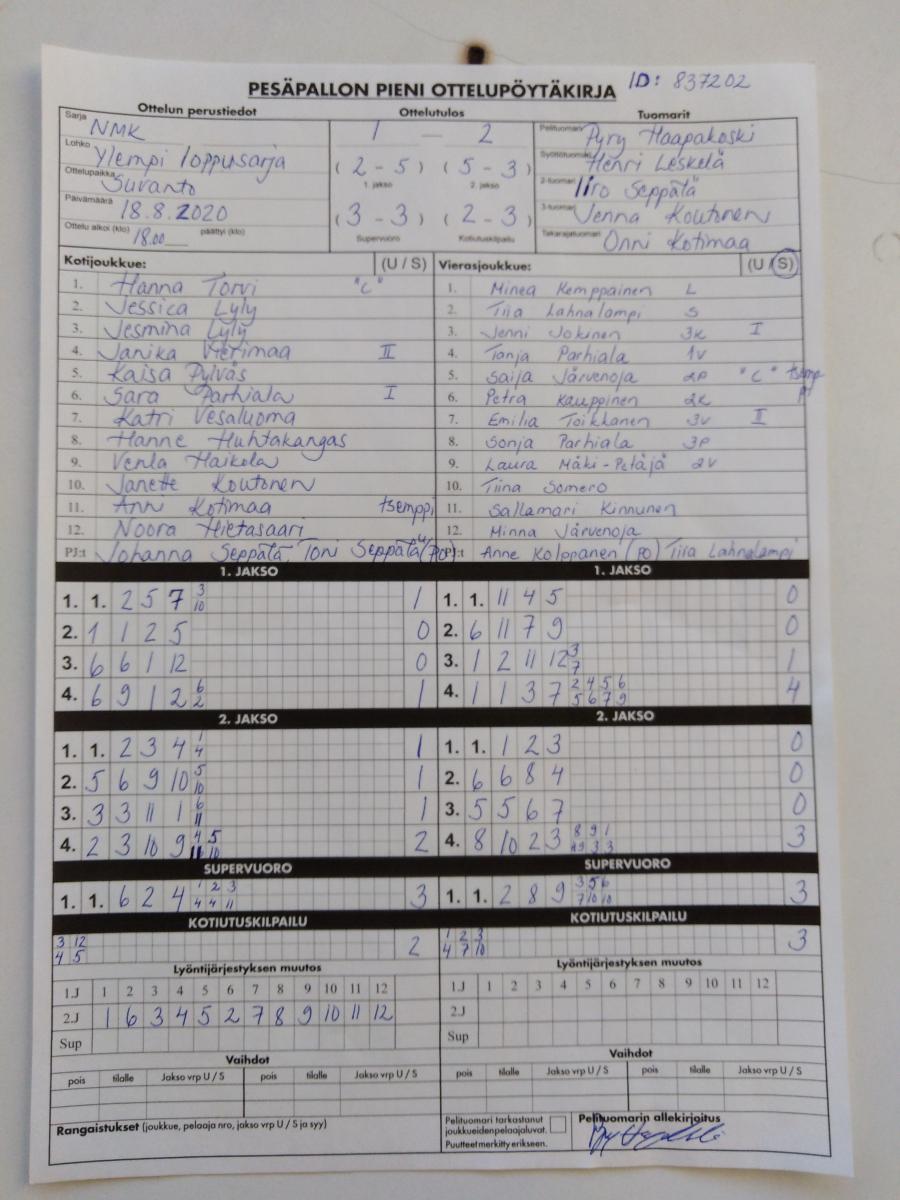 PESÄPALLON PIENI OTTELUPÖYTÄKIRJA ID: 837202
Ottelun perustiedot Ottelutulos Tuomarit
Sarja NMK 1 — 2 Pelituomari Pyry Haapakoski
Lohko Ylempi loppusarja (2-5) (5-3) Syöttötuomari Henri Leskelä
Ottelupaikka Suvanto 1. jakso 2. jakso 2-tuomari Iiro Seppälä
Päivämäärä 18.8.2020 (3-3) (2-3) 3-tuomari Jenna Koutonen
Ottelu alkoi (klo) 18.00 päättyi (klo) Supervuoro Kotiutuskilpailu Takarajatuomari Onni Kotimaa
Kotijoukkue: (U / S) Vierasjoukkue: (U / S)
1. Hanna Torvi "C" 1. Minea Kemppainen L
2. Jessica Lyly 2. Tiia Lahnalampi S
3. Jesmina Lyly 3. Jenni Jokinen 3K I
4. Janika Vierimaa II 4. Tanja Parhiala 1V
5. Kaisa Pylväs 5. Saija Järvenoja 2P "C" tsemp
6. Sara Parhiala I 6. Petra Kauppinen 2K pi
7. Katri Vesaluoma 7. Emilia Toikkanen 3V II
8. Hanne Huhtakangas 8. Sonja Parhiala 3P
9. Venla Haikola 9. Laura Mäki-Petäjä 2V
10. Janette Koutonen 10. Tiina Somero
11. Anni Kotimaa tsemppi 11. Sallamari Kinnunen
12. Noora Hietasaari 12. Minna Järvenoja
PJ:t Johanna Seppälä, Toni Seppälä (PO) PJ:t Anne Kolppanen (PO) Tiia Lahnalampi
1. JAKSO 1. JAKSO
1. 1. 2 5 7 3/10 1 1. 1. 11 4 5 0
2. 1 1 2 5 0 2. 6 11 7 9 0
3. 6 6 1 12 0 3. 1 2 11 12 3/7 1
4. 6 9 1 2 6/2 1 4. 1 1 3 7 2/5 4/6 5/7 6/9 4
2. JAKSO 2. JAKSO
1. 1. 2 3 4 1/4 1 1. 1. 1 2 3 0
2. 5 6 9 10 5/10 1 2. 6 6 8 4 0
3. 3 3 11 1 6/11 1 3. 5 5 6 7 0
4. 2 3 10 9 4/11 5/10 2 4. 8 10 2 3 8 9/3 1/3 3
SUPERVUORO SUPERVUORO
1. 1. 6 2 4 1/4 2/4 3/11 3 1. 1. 2 8 9 3/7 5/10 6/10 3
KOTIUTUSKILPAILU KOTIUTUSKILPAILU
3/4 12/5 2 1/4 2/7 3/10 3
Lyöntijärjestyksen muutos Lyöntijärjestyksen muutos
1.J 1 2 3 4 5 6 7 8 9 10 11 12 1.J 1 2 3 4 5 6 7 8 9 10 11 12
2.J 1 6 3 4 5 2 7 8 9 10 11 12 2.J
Sup Sup
Vaihdot Vaihdot
pois tilalle Jakso vrp U / S pois tilalle Jakso vrp U / S pois tilalle Jakso vrp U / S pois tilalle Jakso vrp U / S
Rangaistukset (joukkue, pelaaja nro, jakso vrp U / S ja syy) Pelituomari tarkastanut Pelituomarin allekirjoitus
joukkueidenpelaajaluvat.
Puutteet merkitty erikseen.